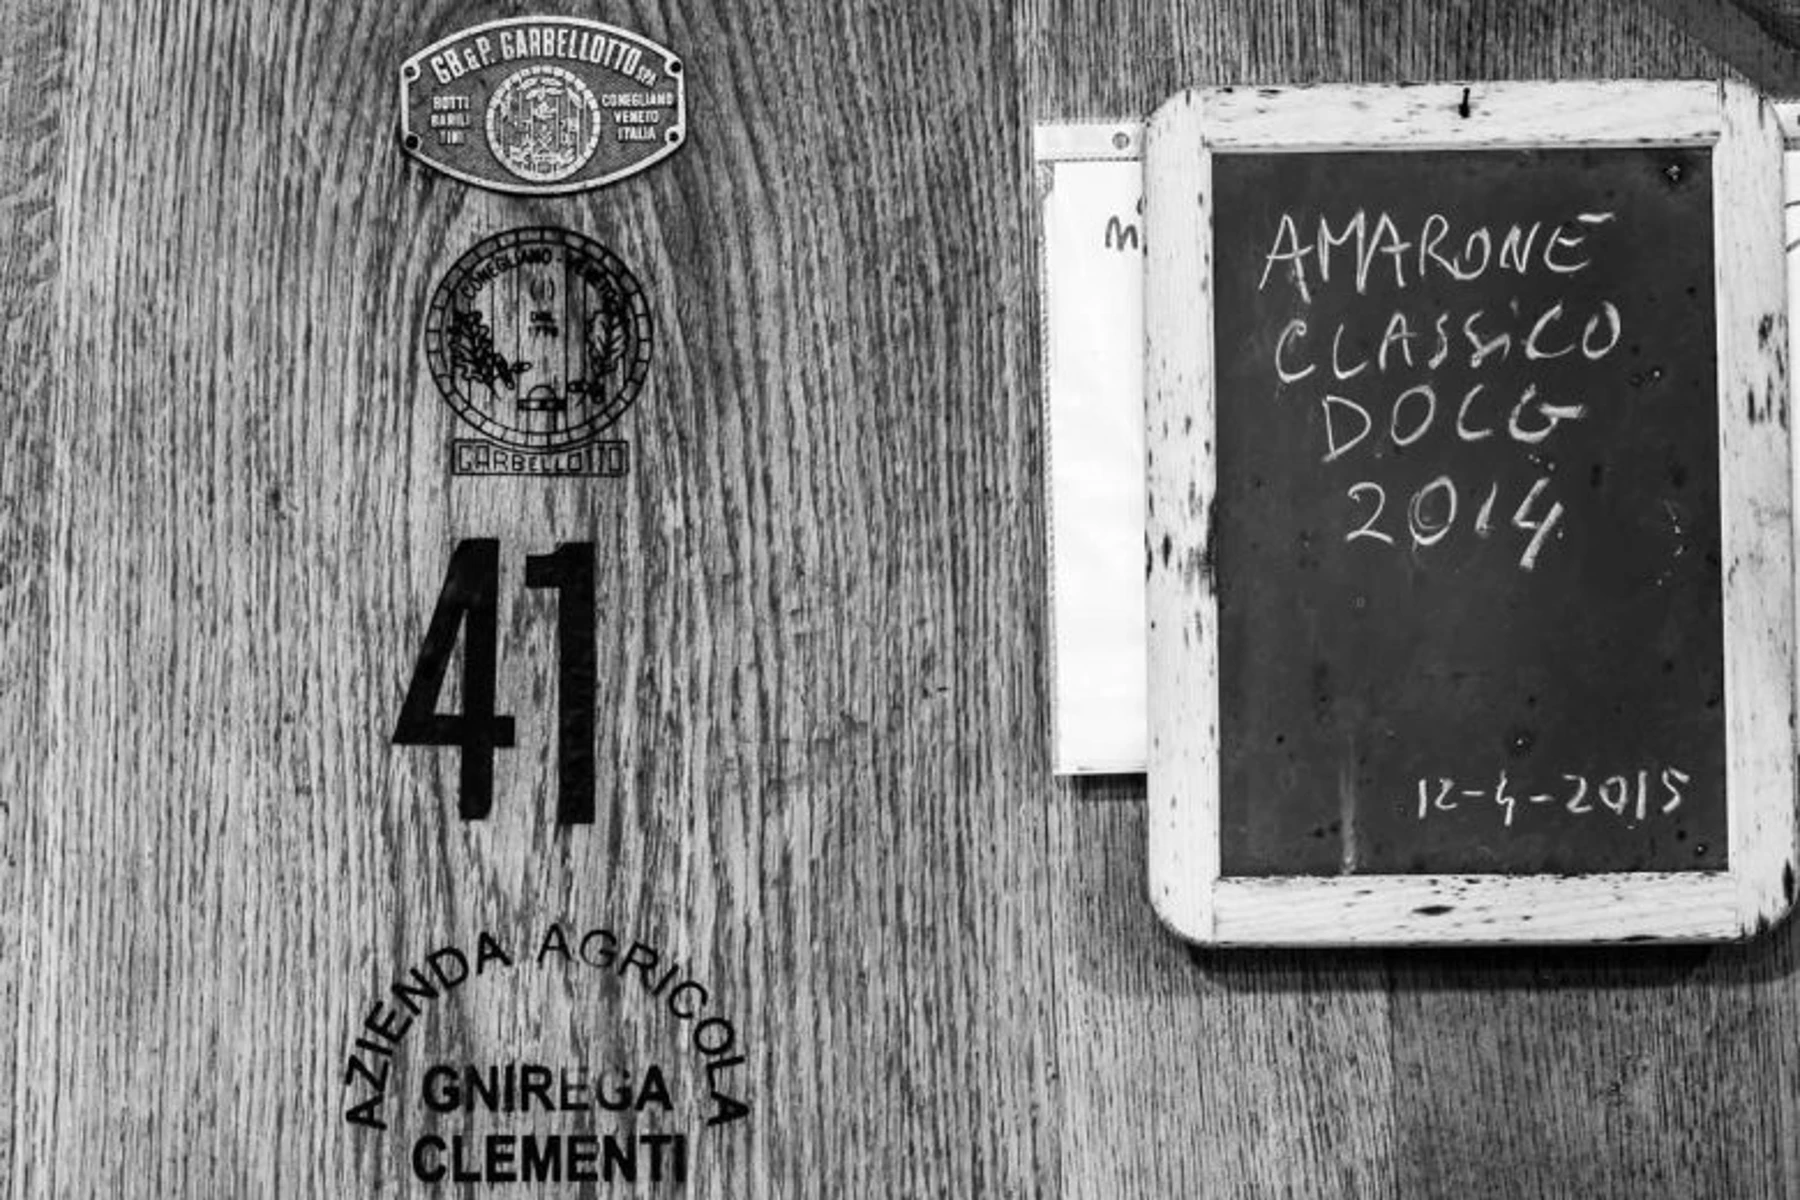 GB.& P. GARBELLOTTO SPA
BOTTI
BARILI
TINI
CONEGLIANO
VENETO
ITALIA
CONEGLIANO - VENETO
DAL
GARBELLOTTO
41
AZIENDA AGRICOLA
GNIREGA
CLEMENTI
AMARONE
CLASSiCO
DOCG
2014
12-4-2015